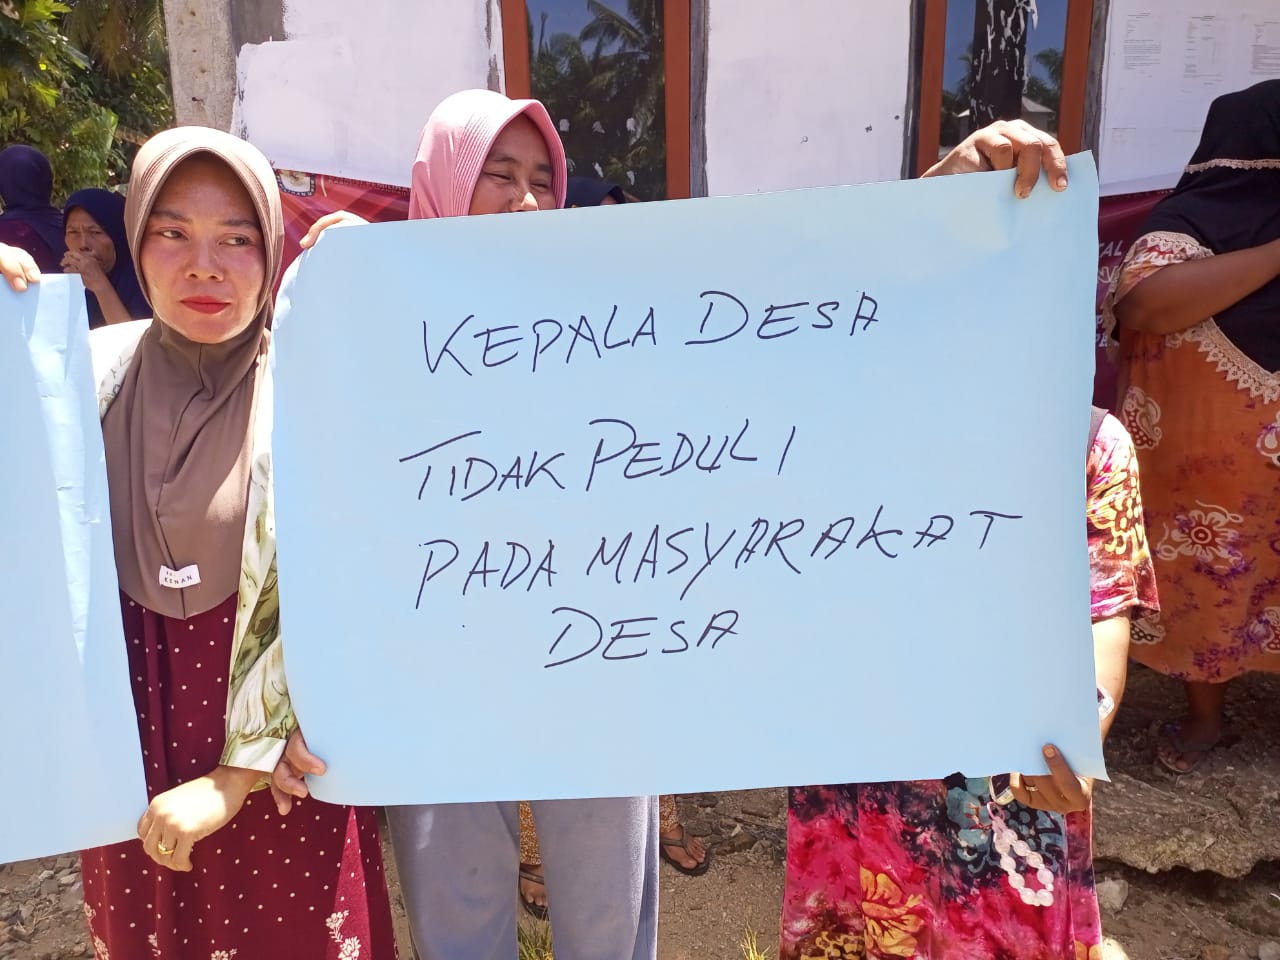 KEPALA DESA
TIDAK PEDULI
PADA MASYARAKAT
DESA
KENAN